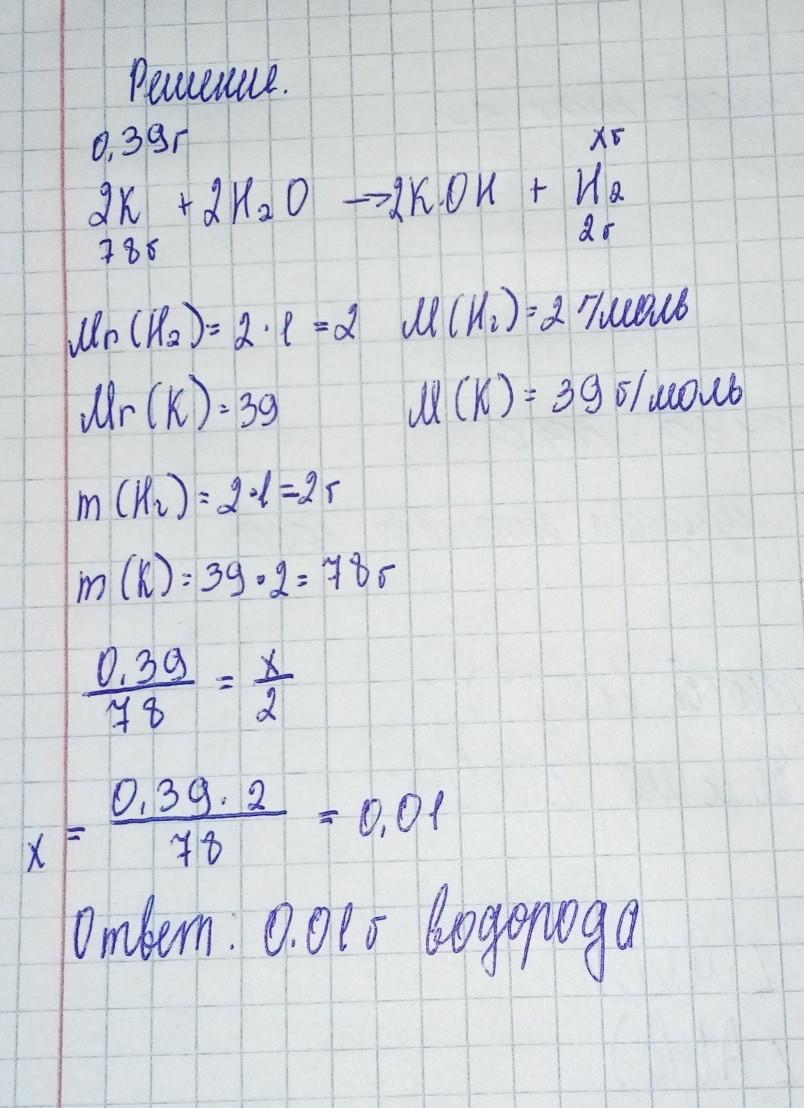 Решение.
0,39г xг
2K + 2H₂O → 2KOH + H₂
78г 2г
Mr(H₂) = 2·1 = 2 M(H₂) = 2 г/моль
Mr(K) = 39 M(K) = 39 г/моль
m(H₂) = 2·1 = 2г
m(K) = 39·2 = 78г
0,39/78 = x/2
x = 0,39·2/78 = 0,01
Ответ: 0.01г водорода